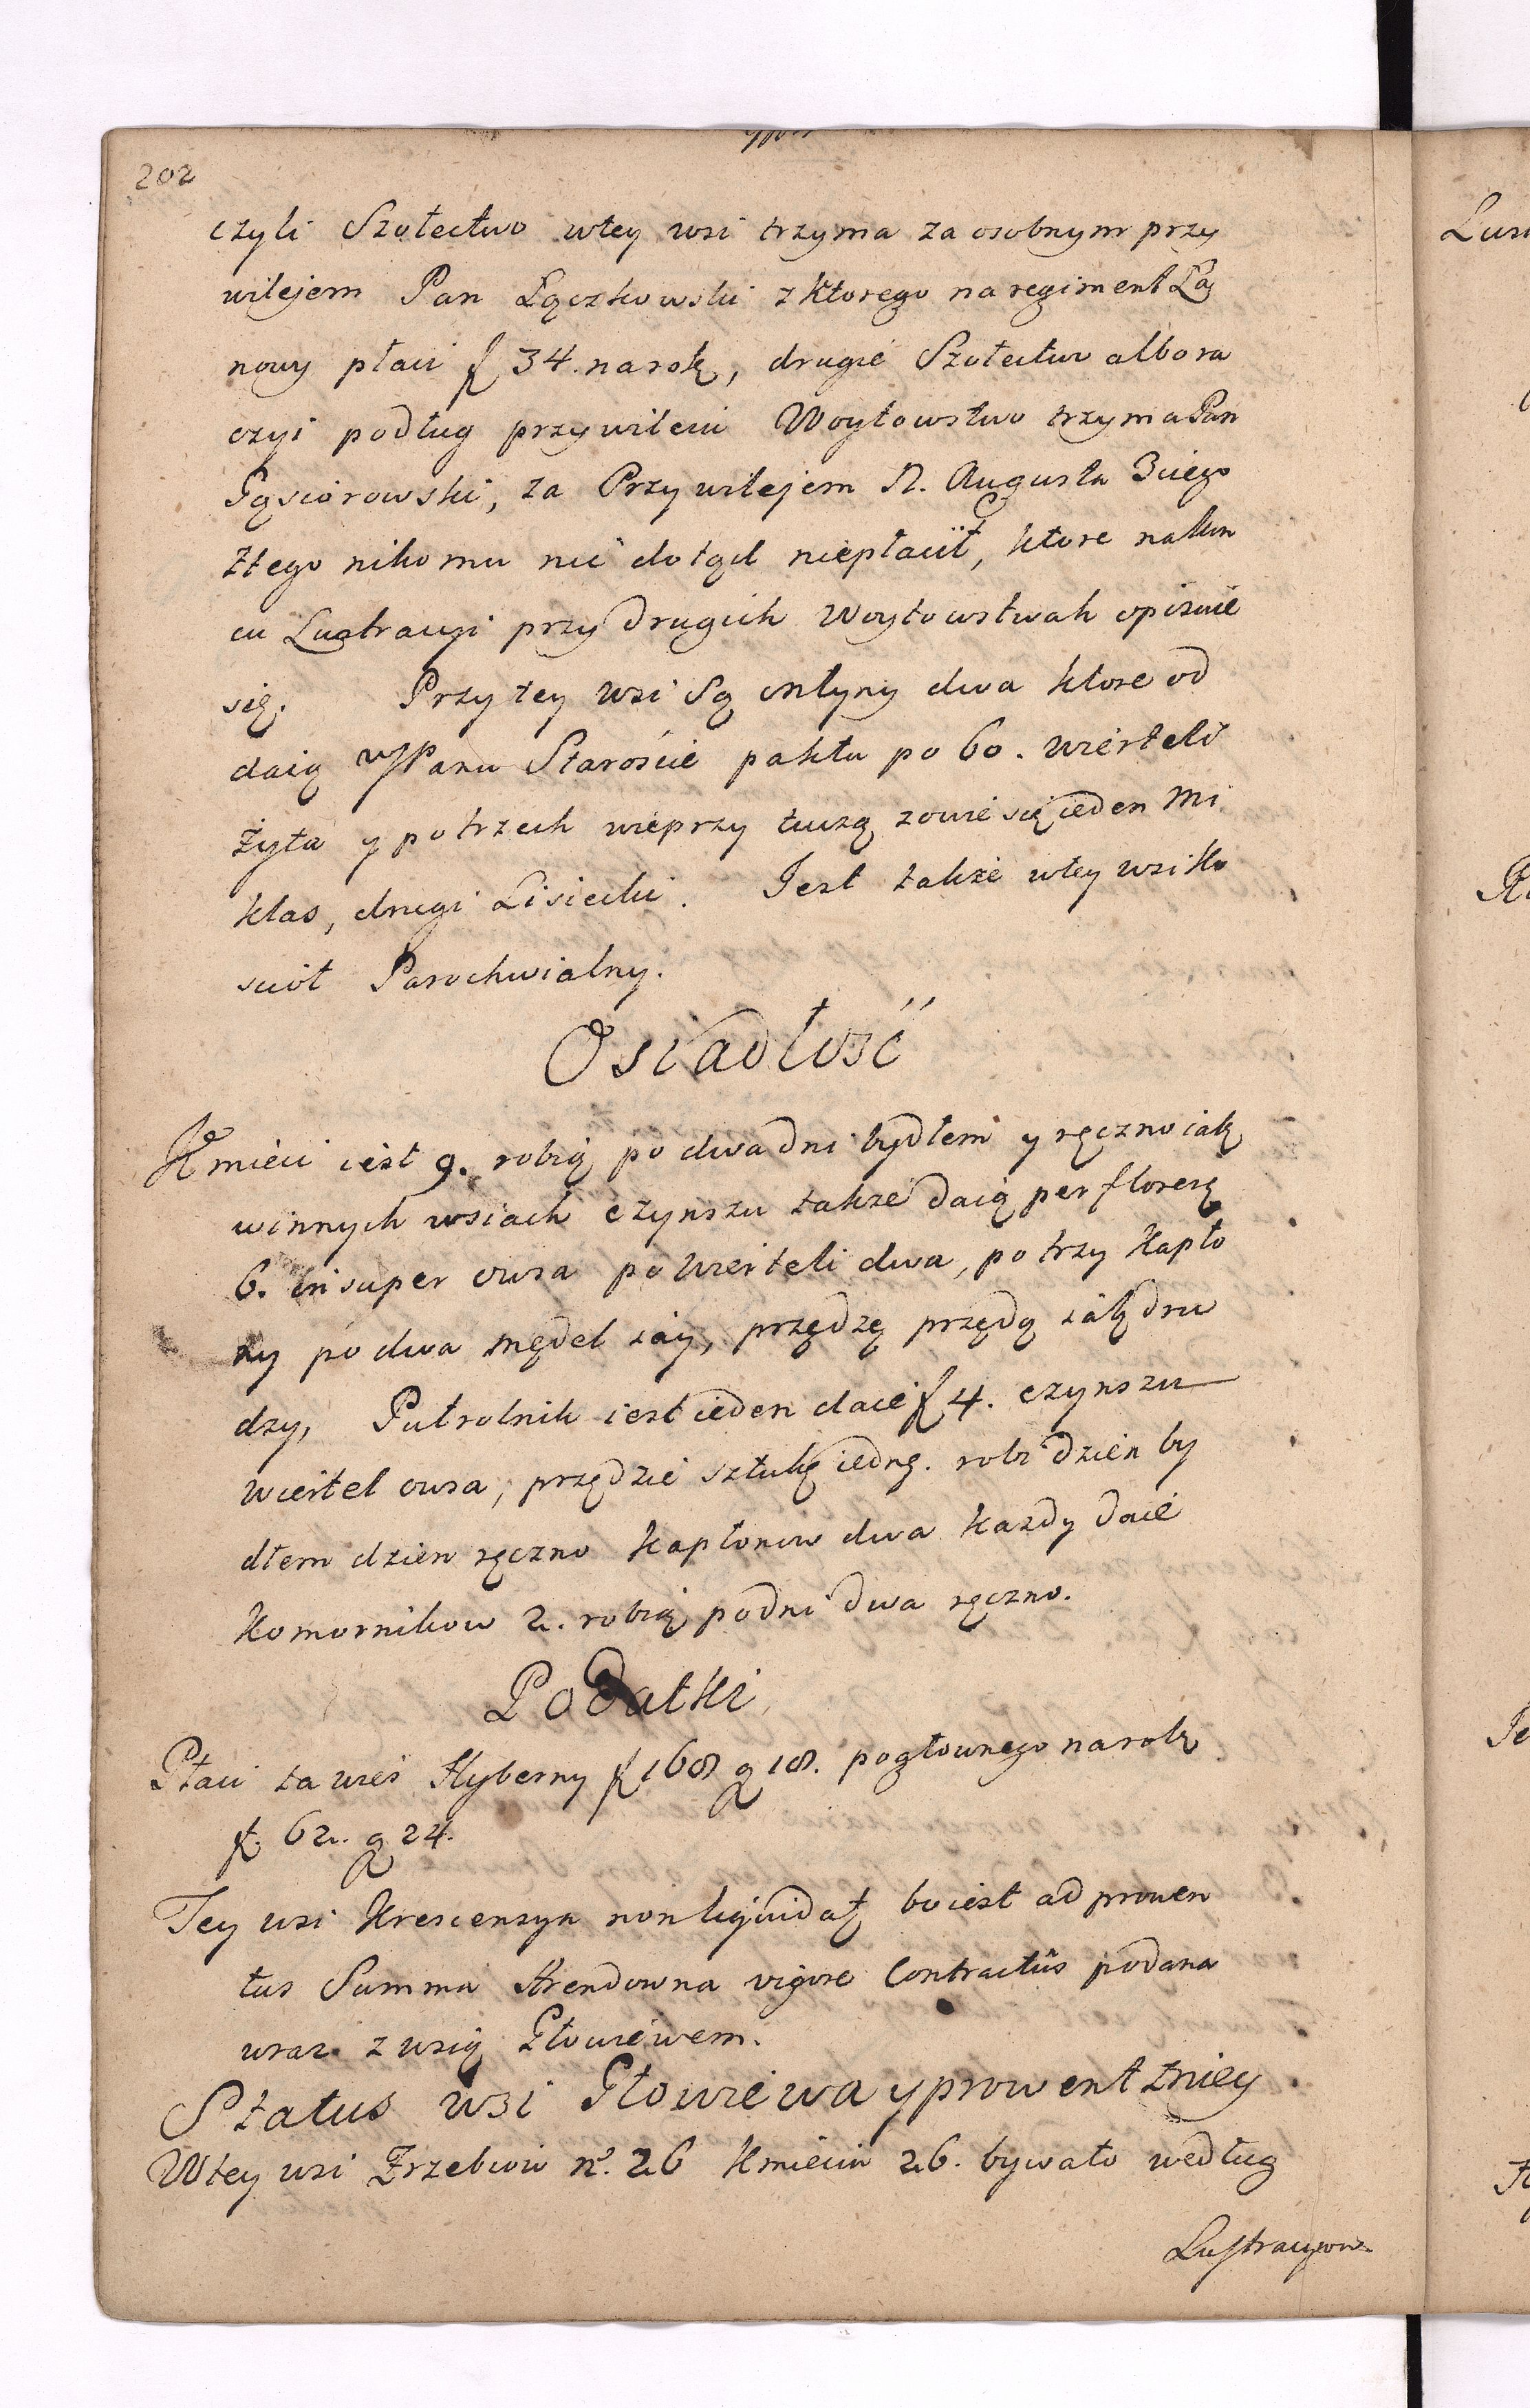 202
czyli Szołectwo wtey wsi trzyma za osobnym przy
wilejem Pan Łączkowski z ktorego na regiment Ła
nowy płaci f 34. na rok, drugie Szołectwo albo ra
czyi podług przywileiu Woytowstwo trzyma Pan
Gąsiorowski, za Przywilejem N. Augusta 3ciego
z tego nikomu nic dotąd niepłacił, ktore na kon
cu Lustracyi przy drugich Woytowstwah opiszie
się. Przy tey wsi Są młyny dwa ktore od
daią WJPanu Starościе paktu po 60. wierteli
żyta y po trzech wieprzy tuczą zowie się ieden Mi
klas, drugi Lisiecki. Jest także wtey wsi Ko
sciół Parochwialny.
Osiadłość
Kmieci iest 9. robią po dwa dni bydłem y ręczno iak
winnych wsiach czynszu także daią per floreny
6. insuper owsa po wierteli dwa, po trzy Kapło
ny po dwa mędel iay, przędzę przędą iak dru
dzy, Pułrolnik iest ieden daie f 4. czynszu
wiertel owsa, przędzie sztukę iedną. robi dzień by
dłem dzien ręczno Kapłonow dwa każdy daie
Komornikow 2. robią po dni dwa ręczno.
Podatki
Płaci ta wieś Hyberny f 168 g 18. pogłownego na rok
f. 62. g 24.
Tey wsi Krescensya non liquidat bo iest ad proven
tus Summa Arendowna vigore Contractûs podana
wraz z wsią Głowiewem.
Status wsi Głowiewa y prowent zniey
W tey wsi Zrzebiow No. 26 Kmieciw 26. bywało według
Lustracyow
Lus